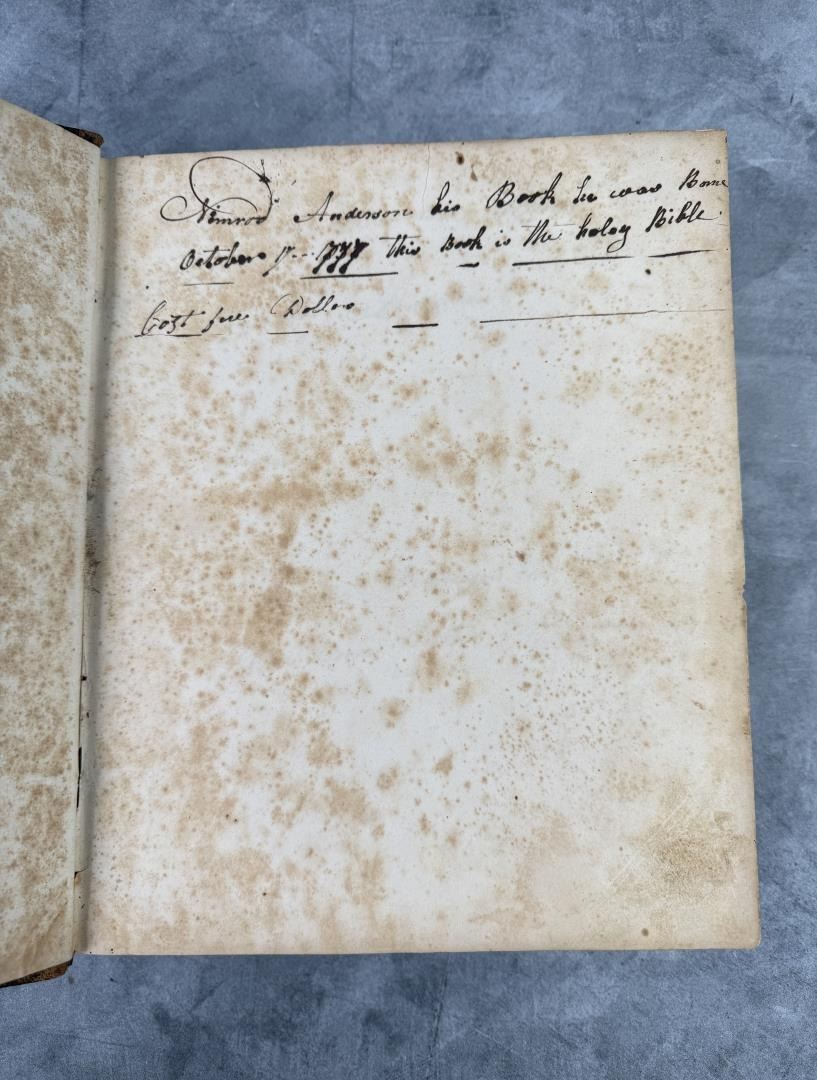 Nimrod Anderson his Book he was Borne
October 7 - - - 1777 this Book is the holey Bible
Cost five Dollars